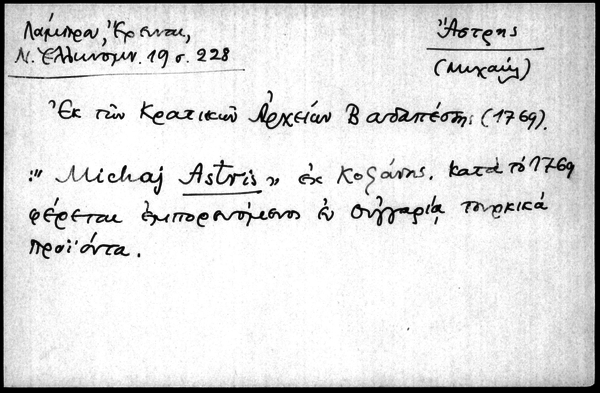 Λάμπρου, Ἔρευναι,
Ν. Ἑλληνομν. 19 σ. 228
Ἄστρης
(Μιχαήλ)
Ἐκ τῶν Κρατικῶν Ἀρχείων Βουδαπέστης (1769).
:" Michaj Astris" ἐκ Κοζάνης. κατὰ τὸ 1769
φέρεται ἐμπορευόμενος ἐν Οὑγγαρίᾳ τουρκικά
προϊόντα.